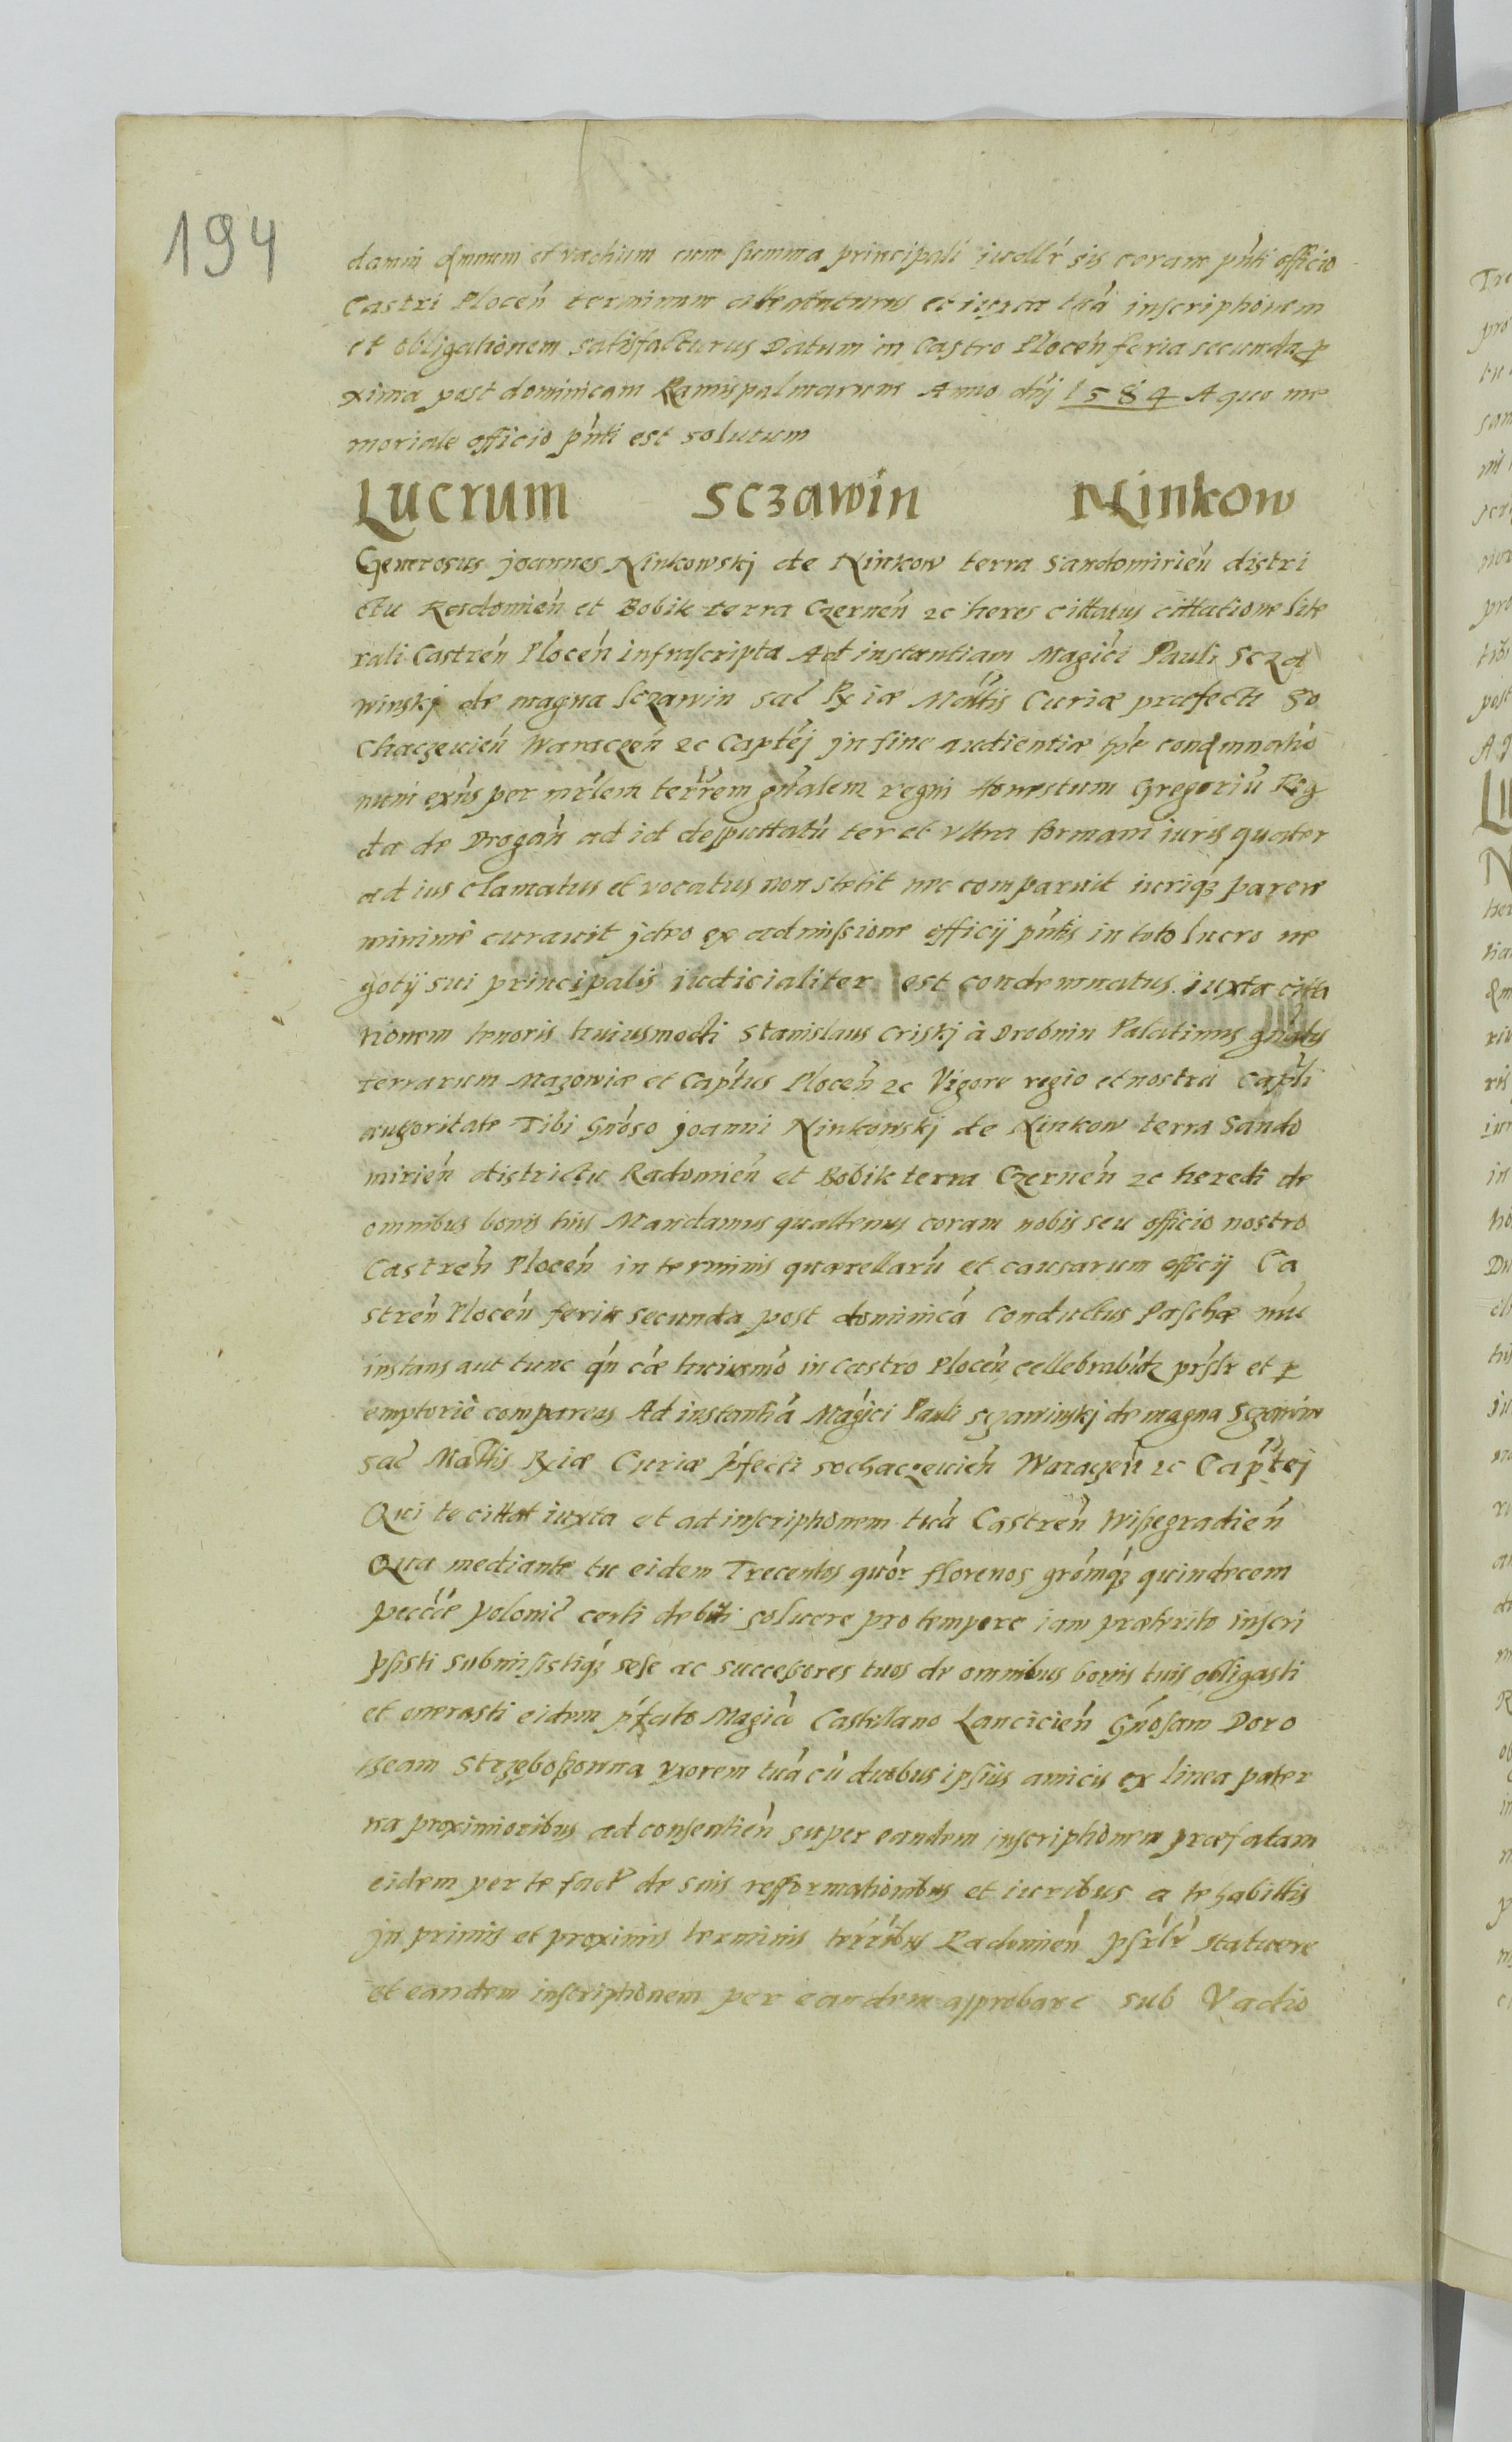 194
damni et vadium cum summa principali iudlr sis coram pnti officio
Castri Plocen terminum attentaturus et iuxta tuā inscriptionem
et obligationem satisfacturus Datum in Castro Plocen feria secunda p
xima post dominicam Ramispalmarum Anno dnj 1584 A quo me
moriale officio pnti est solutum
Lucrum Sczawin Ninkow
Generosus joannes Ninkowskj de Ninkow terra Sandomirien distri
ctu Radomien et Bobik terra Czernen 2c heres cittatus cittatione lite
rali Castren Plocen infrascripta Ad instantiam Magici Pauli Scza
winskj de magna Sczawin sac Rx iæ Mattis Curiæ præfecti so
chaczeuien Waraczen 2c Captej jn fine audientiæ
num exns per mrlem terrem gnalem regni Honestum Gregoriū
da de Drogan ad id desputtatū ter et vltra formam iuris quater
ad ius clamatus et vocatus non stetit nec comparuit iuriqz parere
minime curauit jdeo ex admissione officij pntis in toto lucro ne
gotij sui principalis iudicialiter est condemnatus iuxta citta
tionem tenoris huiusmodi Stanislaus Criskj à Drobnin Palatinus gnalis
terrarum Mazowiæ et Captus Plocen 2c Vigore regio et nostra Capli
autoritate Tibi Gnoso joanni Ninkowskj de Ninkow terra Sando
mirien districtu Radomien et Bobik terra Czernen 2c heredi de
omnibus bonis tuis Mandamus quattenus coram nobis seu officio nostro
Castren Plocen in terminis quærellarū et causarum officij Ca
stren Plocen feria secunda post dominicā Conductus Paschæ nūc
instans aut tunc qn cæ huiusmo in Castro Plocen cellebrabūtz prslr et p
emptorie compareas Ad instantiā Magici Pauli Sczawinskj de magna Sczawin
sac Mattis Rxiæ Curiæ pfecti sochaczeuien Waraczen 2c Captej
Qui te cittat iuxta et ad inscriptionem tuā Castren Wissegradien
Qua mediante tu eidem Trecentos quor florenos gromqz quindecem
peccæ polonic certi debiti soluere pro tempore iam præterito inscri
psisti submisistiqz sese ac successores tuos de omnibus bonis tuis obligasti
et onerasti eidem pfato Magico Castellano Lancicien Gnosam Doro
theam Strzęboszowna vxorem tuā cū duobus ipsius amicis ex linea pater
na proximioribus ad consentien super eandem inscriptionem præfatam
eidem per te fact de suis refformationibus et iuribus a te habittis
jn primis et proximis terminis terribus Radomien psrlr statuere
et eandem inscriptionem per eandem approbare sub Vadio